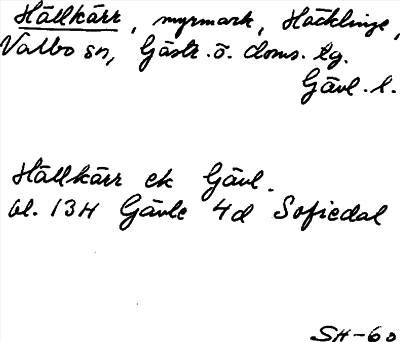 Hällkärr, myrmark, Häcklinge,
Valbo sn, Gästr. ö. doms. tg.
Gävl. l.
Hällkärr ek Gävl.
bl. 13H Gävle 4d Sofiedal
SH-60